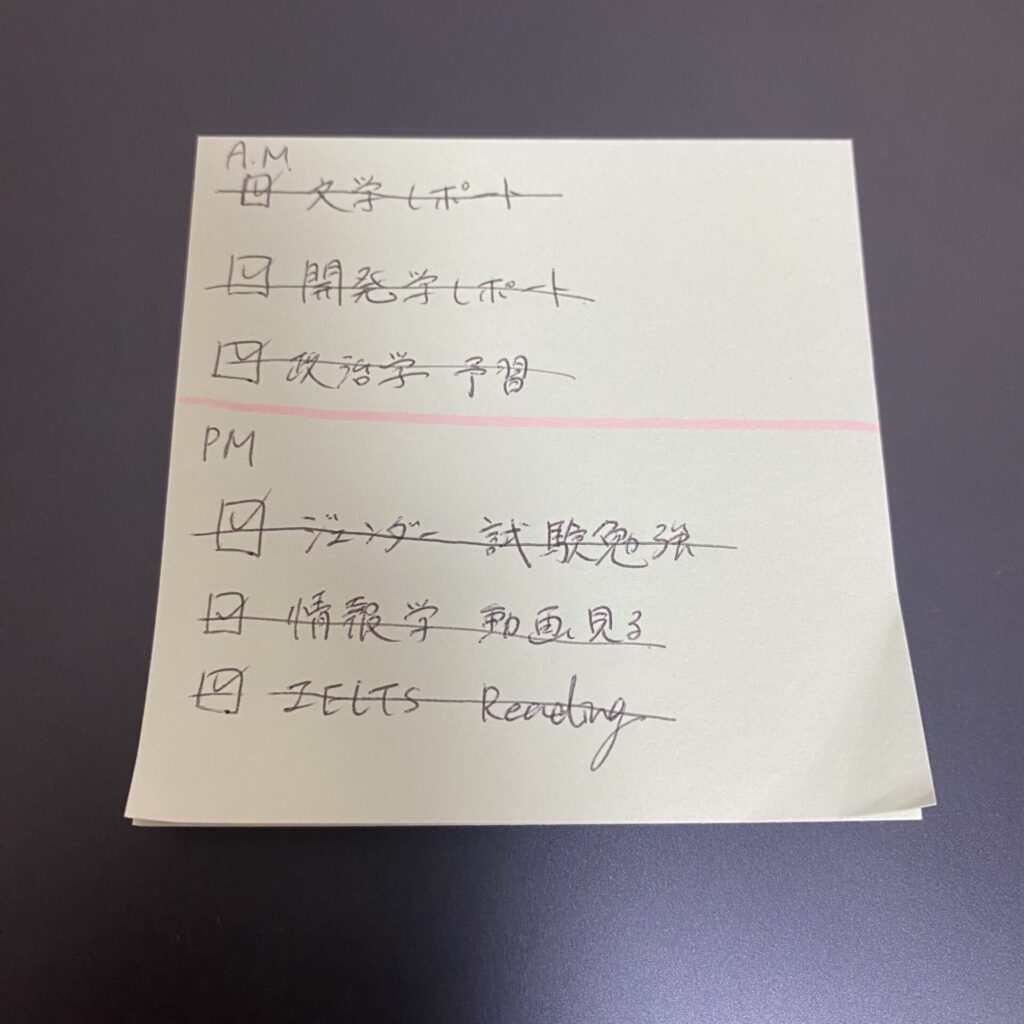 A.M.
☑ 文学レポート
☑ 開発学レポート
☑ 政治学 予習
PM
☑ ジェンダー 試験勉強
☑ 情報学 動画見る
☑ IELTS Reading